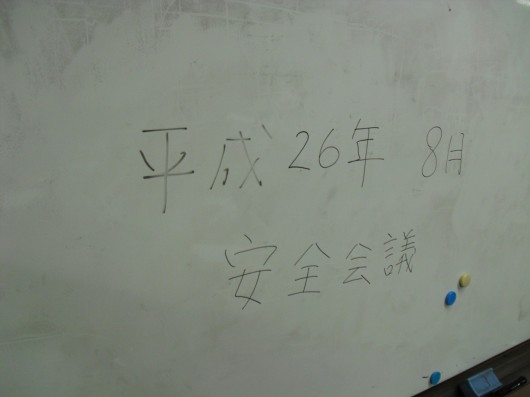 平成26年 8月
安全会議